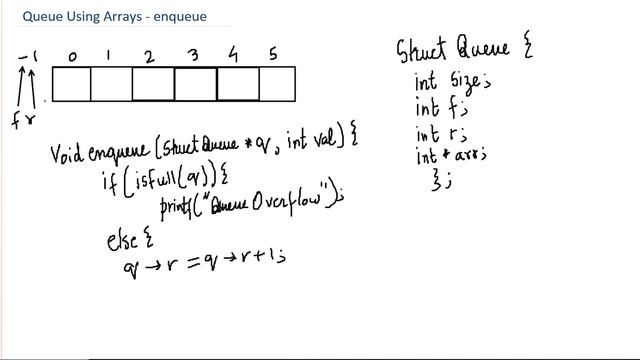 Queue Using Arrays - enqueue
-1 0 1 2 3 4 5
f r
Void enqueue (Struct Queue * q, int val) {
if (isfull(q)) {
printf("Queue Overflow");
else {
q → r = q → r + 1;
Struct Queue {
int size;
int f;
int r;
int * arr;
};